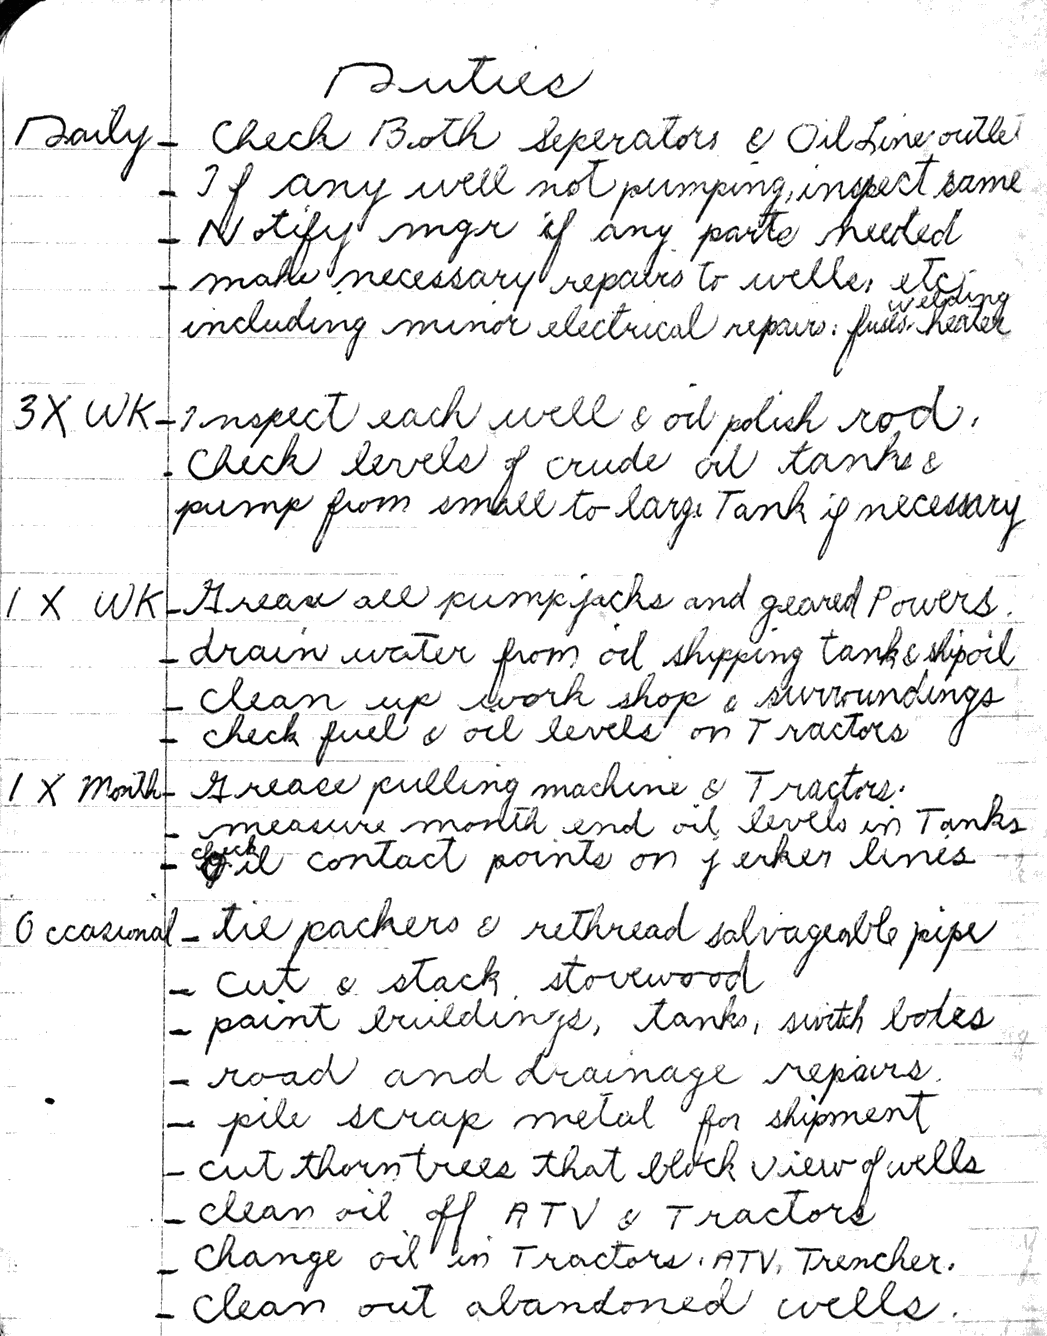 Duties
Daily - Check Both Seperators & Oil Line outlet
- If any well not pumping, inspect same
- Notify mgr if any parts needed
- make necessary repairs to wells, etc.
welding
including minor electrical repairs: fuses heater
3 X WK - Inspect each well & oil polish rod.
- Check levels of crude oil tanks &
pump from small to large Tank if necessary
1 X WK - Grease all pumpjacks and geared Powers.
- drain water from oil shipping tank & ship oil
- Clean up work shop & surroundings
- check fuel & oil levels on Tractors
1 X Month - Grease pulling machine & Tractors.
- measure month end oil levels in Tanks
check
- oil contact points on jerker lines
Occasional - tie packers & rethread salvageable pipe
- cut & stack stovewood
- paint buildings, tanks, switch boxes
- road and drainage repairs.
- pile scrap metal for shipment
- cut thorn trees that block view of wells
- clean oil off ATV & Tractors
- Change oil in Tractors, ATV, Trencher.
- Clean out abandoned wells.